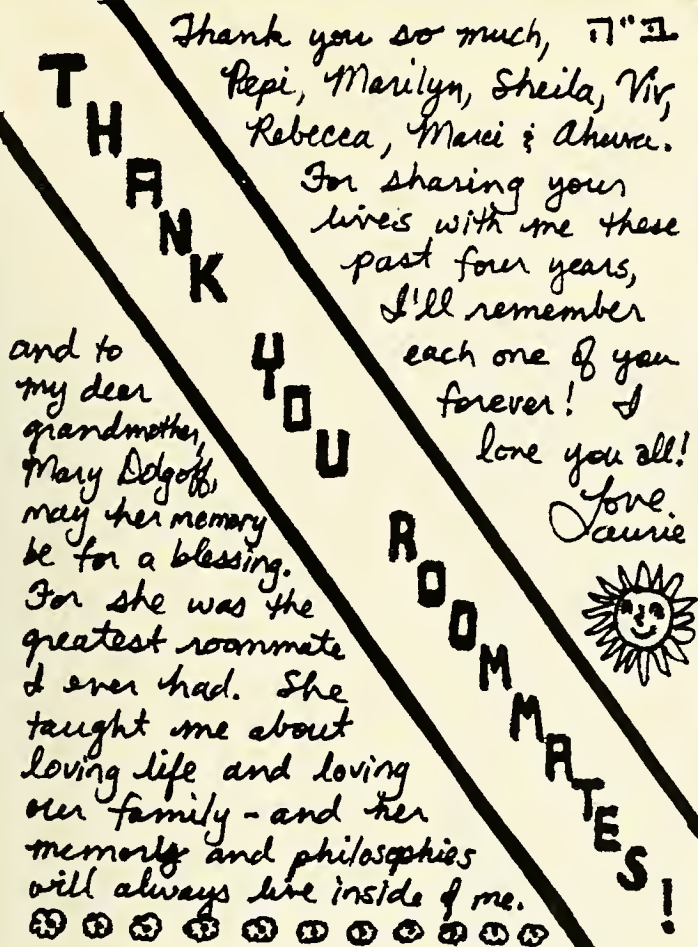 THANK YOU ROOMMATES!
ב"ה
Thank you so much,
Pepi, Marilyn, Sheila, Viv,
Rebecca, Marci & Ahuva.
For sharing your
lives with me these
past four years,
I'll remember
each one of you
forever! I
love you all!
Love
Laurie
and to
my dear
grandmother,
Mary Dolgoff,
may her memory
be for a blessing.
For she was the
greatest roommate
I ever had. She
taught me about
loving life and loving
our family - and her
memory and philosophies
will always live inside of me.